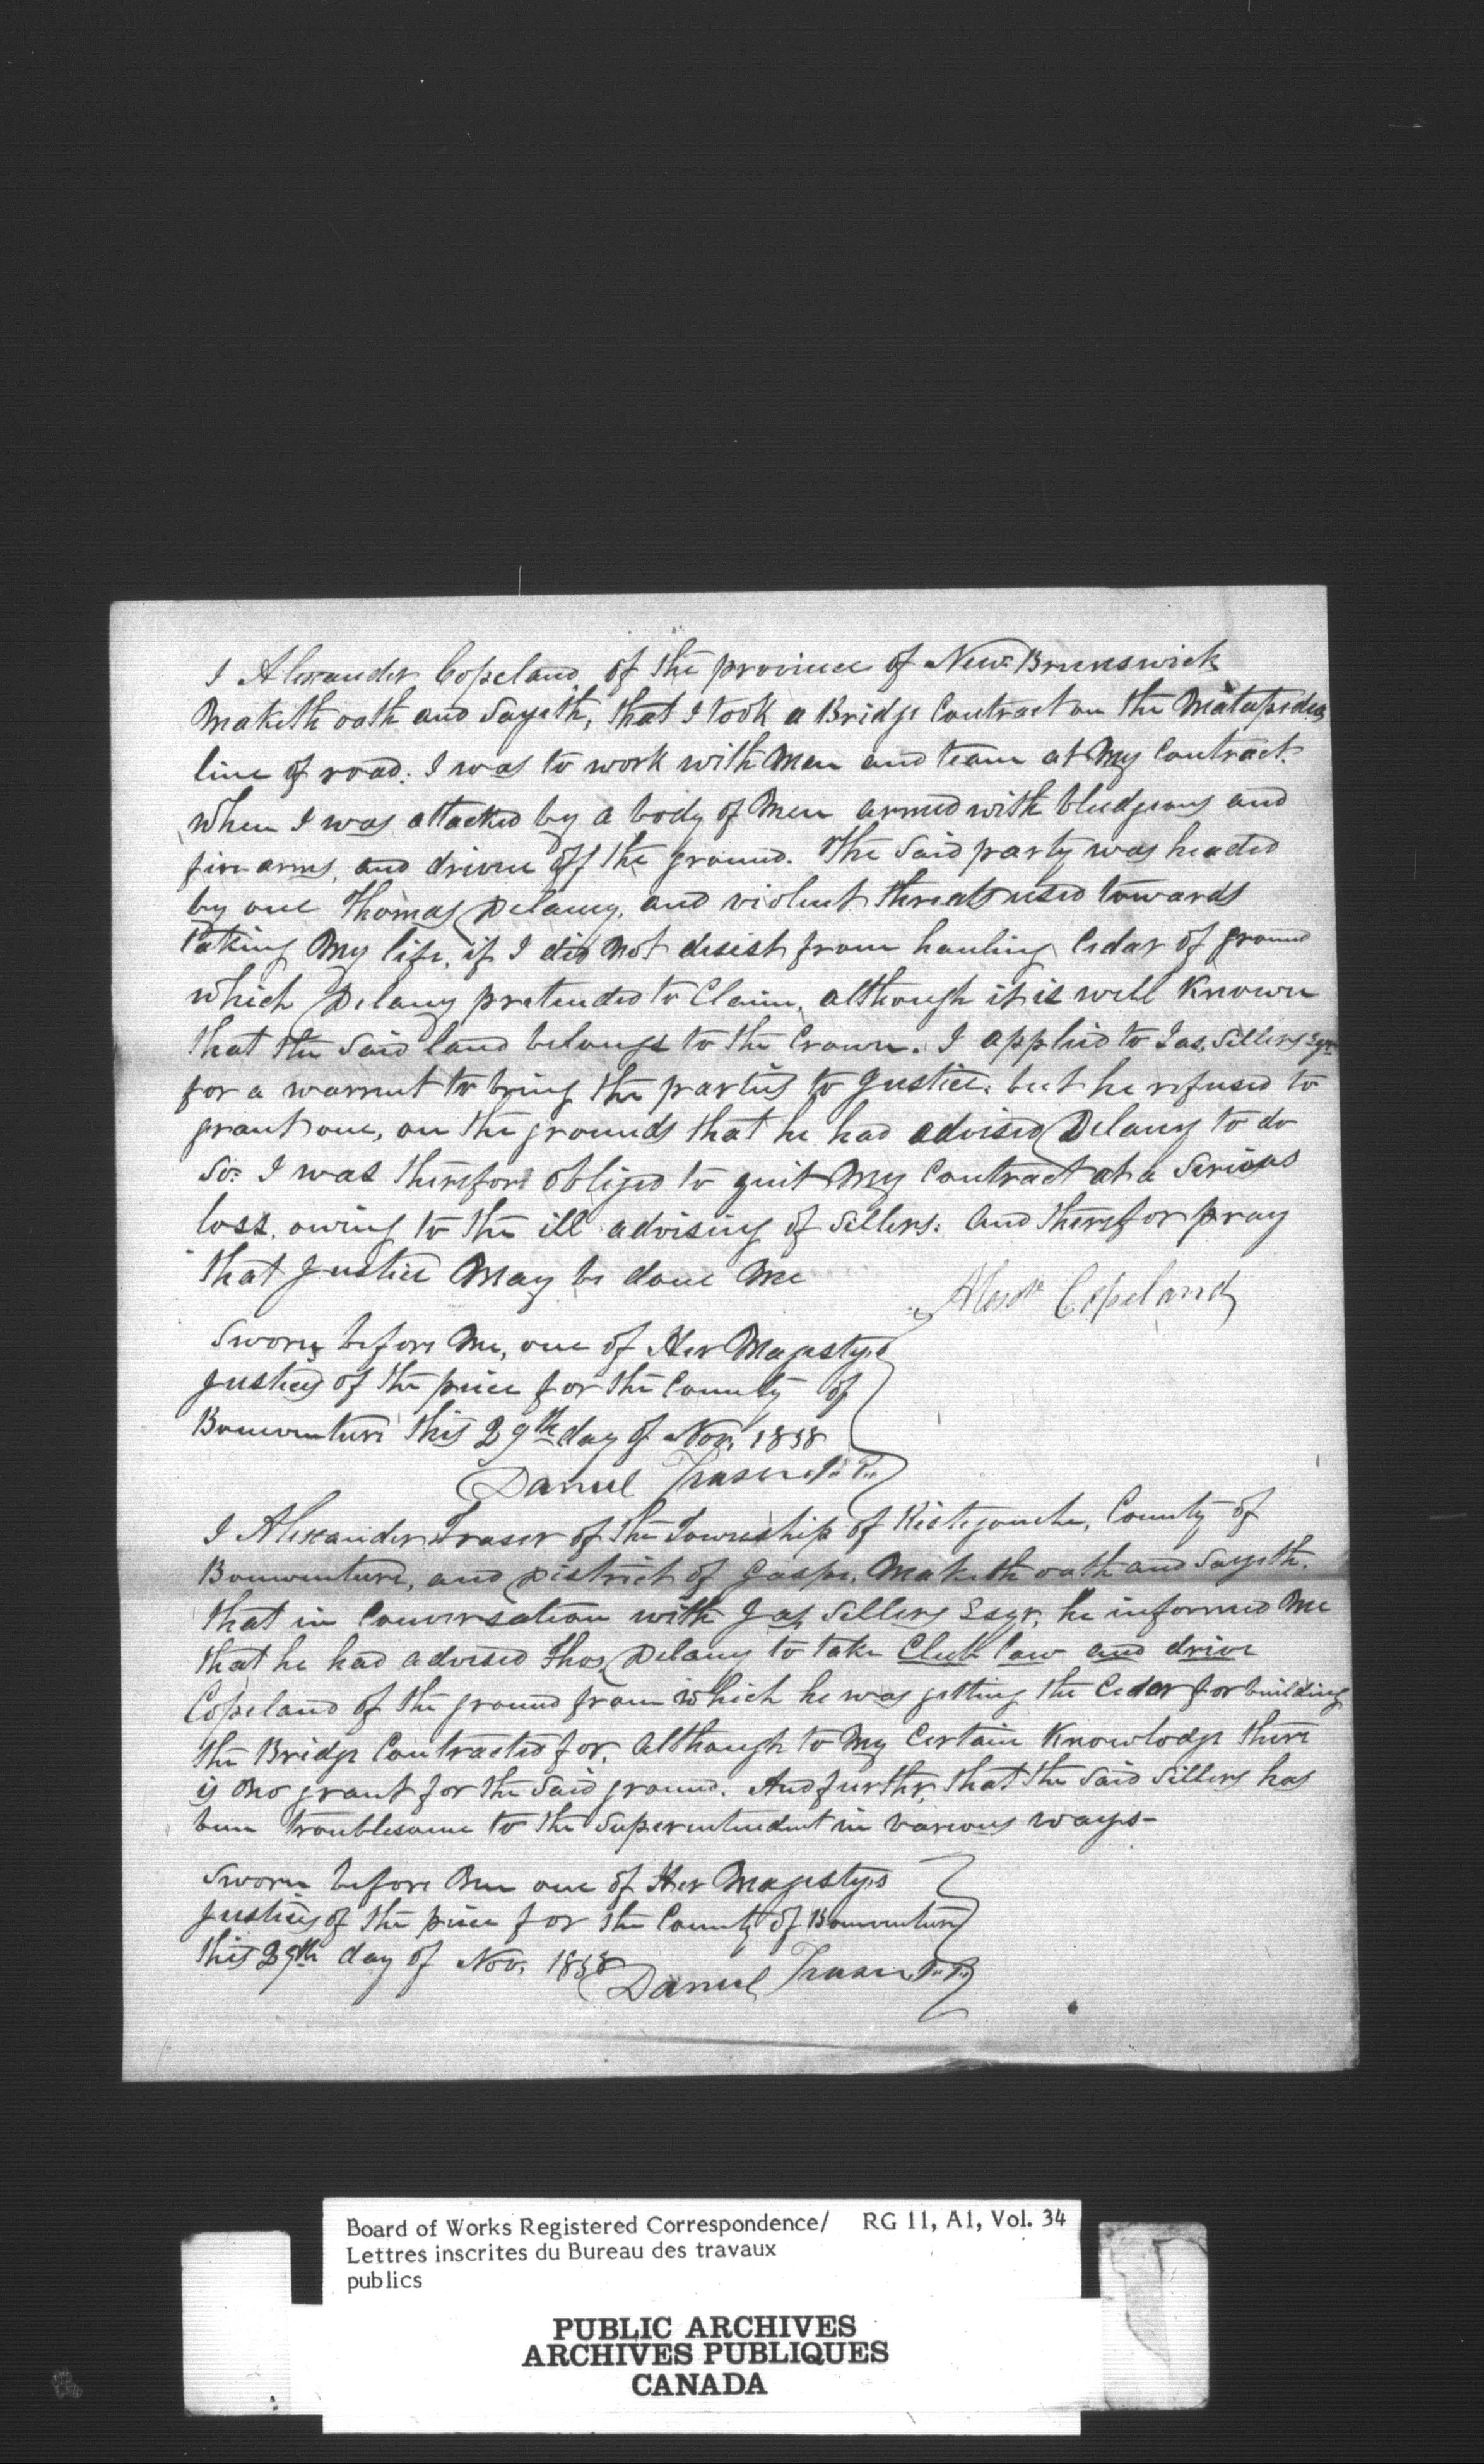 I Alexander Copeland of the province of New Brunswick
Maketh oath and Sayeth, that I took a Bridge Contract on the Matapedia
line of road. I was to work with Men and team at My Contract.
When I was attacked by a body of Men armed with bludgeons and
fire arms, and driven off the ground. The Said party was headed
by one Thomas Delany, and violent threats used towards
taking My life, if I did Not desist from hauling Cedar of ground
which Delany pretended to Claim, although it is well Known
that the Said land belongs to the Crown. I applied to Jas. Sillers Esqr
for a warrent to bring the parties to Justice. but he refused to
grant one, on the grounds that he had advised Delany to do
So: I was therefore obliged to quit My Contract at a Serious
loss, owing to the ill advising of Sillers: And therefor pray
that Justice May be done Me
Alexdr Copeland
Sworn before Me, one of Her Magestys
Justices of the peice for the County of
Bonventure this 29th day of Nov. 1858
Daniel Fraser J. P.
I Alexander Fraser of the Township of Ristigouche, County of
Bonventure, and District of Gaspe, Maketh oath and Sayeth.
that in Conversation with Jas Sillers Esqr, he informed Me
that he had advised Thos Delany to take Club law and drive
Copeland of the ground from which he was getting the Cedar for building
the Bridge Contracted for, Although to My Certain Knowlodge there
is No grant for the Said ground. And further, that the Said Sillers has
been troublesome to the Superintendent in various ways-
Sworn before Me one of Her Magestys
Justices of the peice for the County of Bonventure
this 29th day of Nov. 1858
Daniel Fraser J. P.
Board of Works Registered Correspondence/ RG 11, A1, Vol. 34
Lettres inscrites du Bureau des travaux
publics
PUBLIC ARCHIVES
ARCHIVES PUBLIQUES
CANADA